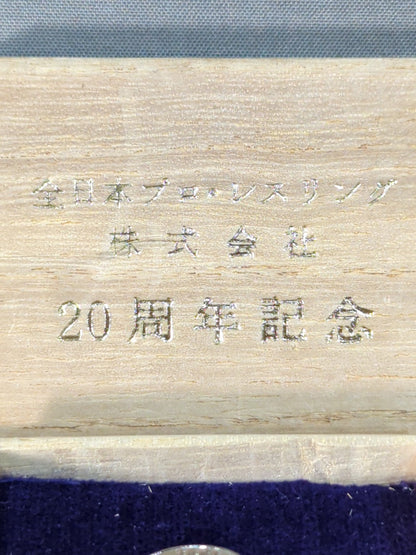 全日本プロ・レスリング
株式会社
20周年記念